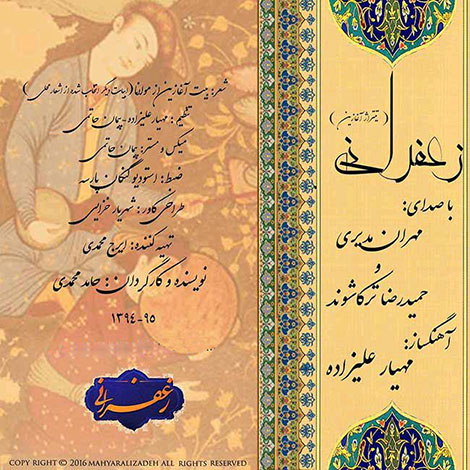 (تیتراژ آغازین)
زعفرانی
با صدای:
مهران مدیری
و
حمیدرضا ترکاشوند
آهنگساز:
مهیار علیزاده
شعر: بیت آغازین از مولانا (ابیات دیگر انتخاب شده از اشعار محلی)
تنظیم: مهیار علیزاده-پیمان حاتمی
میکس و مستر: پیمان حاتمی
ضبط: استودیو گنجان پارسه
طراحی کاور: شهریار خزایی
تهیه کننده: ایرج محمدی
نویسنده و کارگردان: حامد محمدی
۱۳۹۴-۹۵
زعفرانی
COPY RIGHT © 2016 MAHYARALIZADEH ALL RIGHTS RESERVED